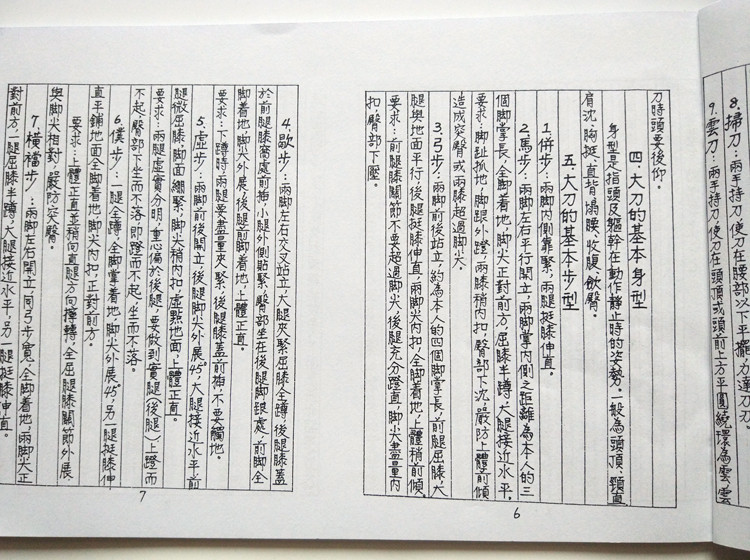 8. 掃刀：兩手持刀使刀在腰部以下平擺，力達刀刃。
9. 雲刀：兩手持刀使刀在頭頂或頭前上方平圓繞環為雲，雲
刀時頭要後仰。
四.大刀的基本身型
身型是指頭及軀幹在動作靜止時的姿勢。一般為頭頂、頸直、
肩沈、胸挺、直背、塌腰、收腹、斂臀。
五.大刀的基本步型
1.併步：兩脚內側靠緊，兩腿挺膝伸直。
2.馬步：兩脚左右平行開立，兩脚掌內側之距離為本人的三
個脚掌長，全脚着地，脚尖正對前方，屈膝半蹲，大腿接近水平。
要求：脚趾抓地，脚跟外蹬，兩膝稍內扣，臀部下沈，嚴防上體前傾
造成突臀或兩膝超過脚尖。
3.弓步：兩脚前後站立，約為本人的四個脚掌長，前腿屈膝大
腿與地面平行，後腿挺膝伸直，兩脚尖內扣，全脚着地，上體稍前傾。
要求：前腿膝關節不要超過脚尖，後腿充分蹬直，脚尖盡量內
扣，臀部下壓。
6
4.歇步：兩脚左右交叉站立，大腿夾緊屈膝全蹲，後腿膝蓋
於前腿膝窩處前抽，小腿外側貼緊，臀部坐在後腿脚跟處，前脚全
脚着地，脚尖外展，後腿前脚着地，上體正直。
要求：下蹲時，兩腿要盡量夾緊，後腿膝蓋前抽，不要觸地。
5.虛步：兩脚前後開立，後腿脚尖外展45°，大腿接近水平，前
腿微屈膝，脚面繃緊，脚尖稍內扣，虛點地面，上體正直。
要求：兩腿虛實分明，重心偏於後腿，要做到實腿（後腿）：蹬而
不起，臀部下坐而不落即蹬而不起，坐而不落。
6.僕步：一腿全蹲，全脚掌着地，脚尖外展45°，另一腿挺膝伸
直平鋪地面全脚着地，脚尖內扣，正對前方。
要求：上體正直並稍向直腿方向擰轉，全屈腿膝關節外展
與脚尖相對，嚴防突臀。
7.橫襠步：兩脚左右開立，同弓步寬，全脚着地，兩脚尖正
對前方，一腿屈膝半蹲，大腿接近水平，另一腿挺膝伸直。
7